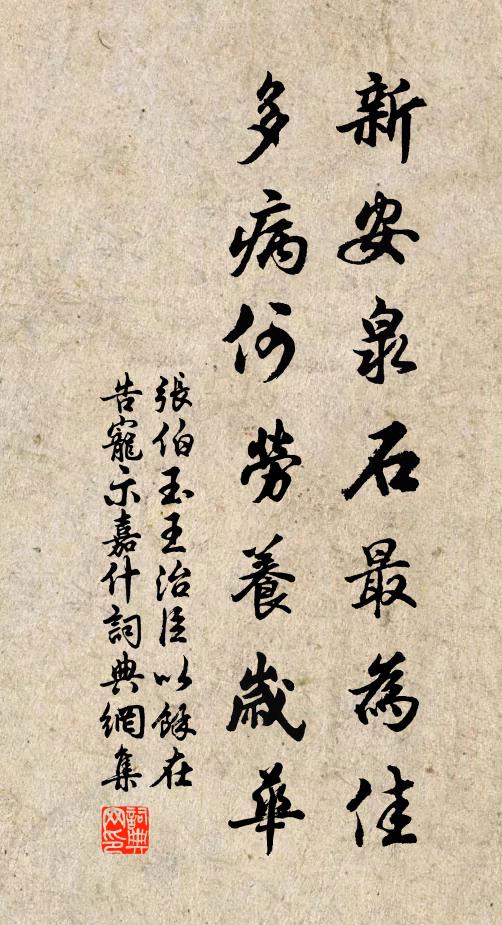 新安泉石最為佳
多病何勞養歲華
張伯玉王治臣以餘在
告寵示嘉什詞典網集
詞典网印